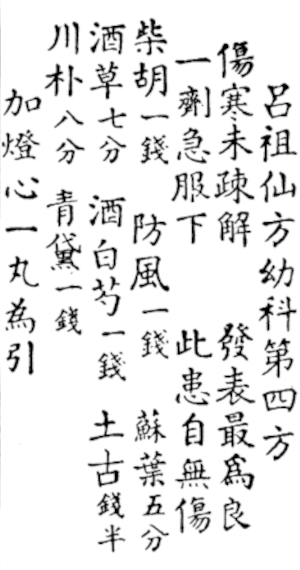 呂祖仙方幼科第四方
傷寒未疎解 發表最爲良
一劑急服下 此患自無傷
柴胡一錢 防風一錢 蘇葉五分
酒草七分 酒白芍一錢 土古錢半
川朴八分 青黛一錢
加燈心一丸為引